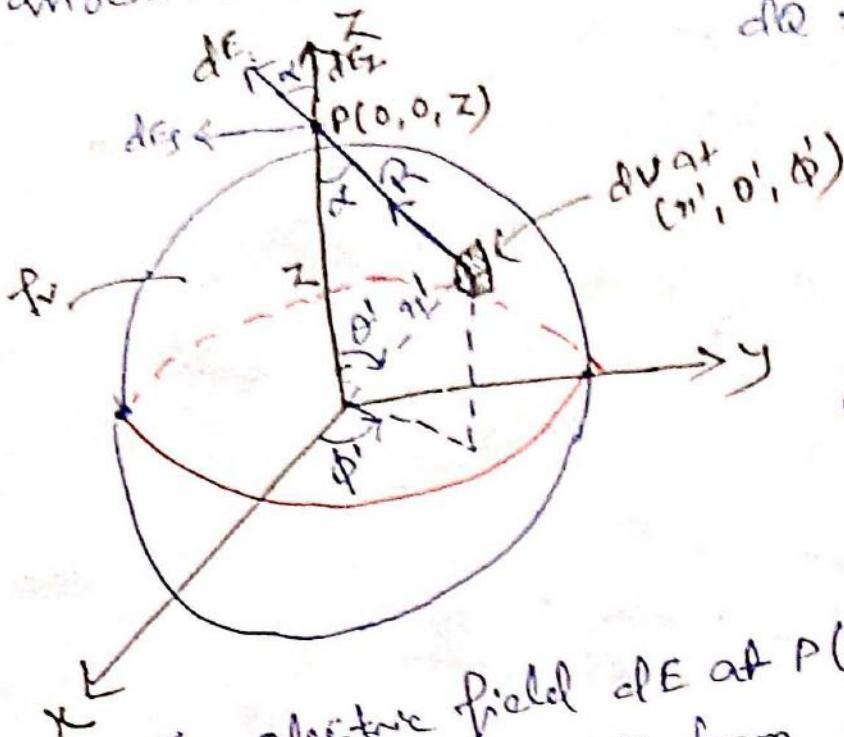 dQ =
Z
dE α dEz
P(0, 0, Z)
dEρ
α R
dv at
(r', θ', φ')
ρv
Z θ' r'
y
φ'
x
electric field dE at P(